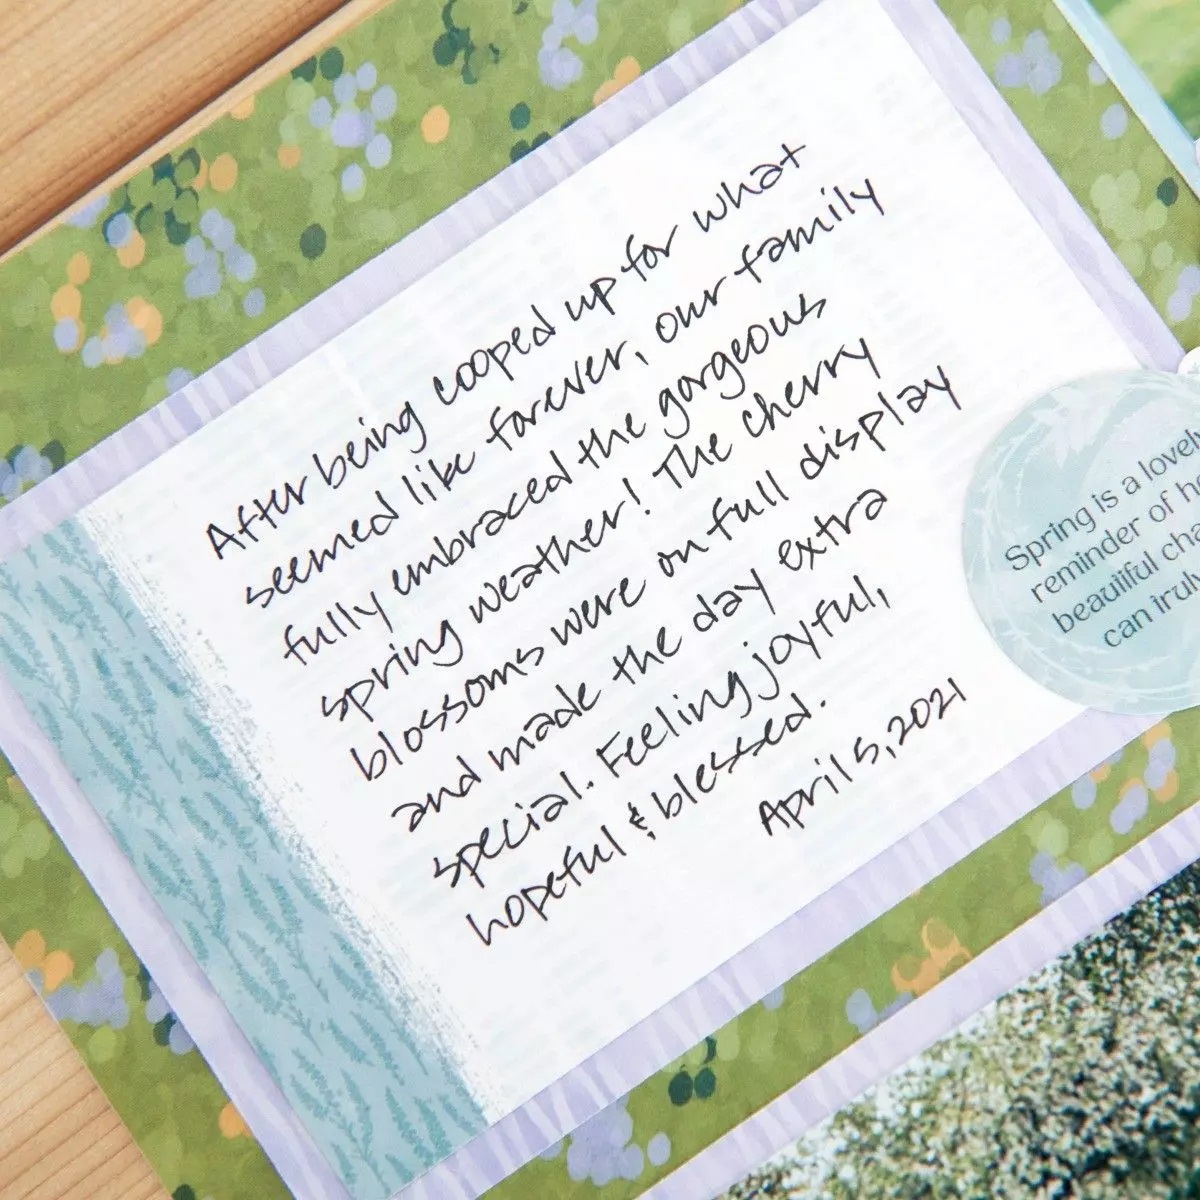 After being cooped up for what
seemed like forever, our family
fully embraced the gorgeous
spring weather! The cherry
blossoms were on full display
and made the day extra
special. Feeling joyful,
hopeful & blessed.
April 5, 2021
Spring is a lovely
reminder of
beautiful
can